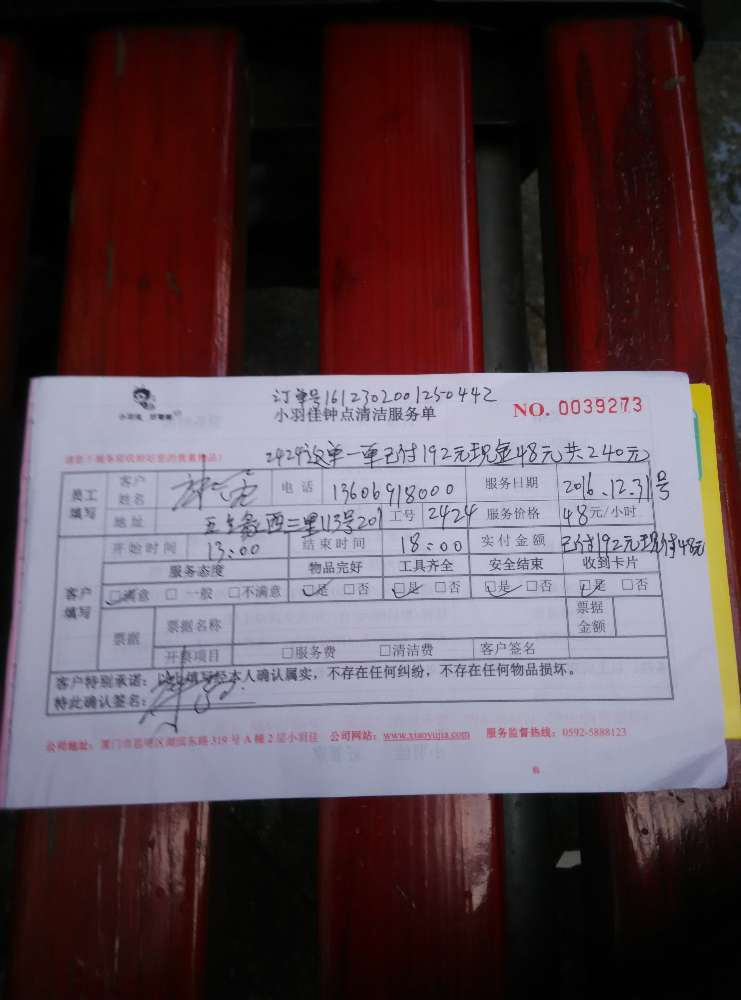 订单号1612302001250442
小羽佳钟点清洁服务单 NO. 0039273
小羽佳
2424这单一单已付192元现金48元共240元
员工填写 客户姓名 电话 13606918000 服务日期 2016.12.31号
地址 西二里113号201 工号 2424 服务价格 48元/小时
开始时间 13:00 结束时间 18:00 实付金额 已付192元现付48元
客户填写 服务态度 物品完好 工具齐全 安全结束 收到卡片
☑满意 □一般 □不满意 ☑是 □否 ☑是 □否 ☑是 □否 ☑是 □否
票据 票据名称 票据金额
开票项目 □服务费 □清洁费 客户签名
客户特别承诺：以上填写经本人确认属实，不存在任何纠纷，不存在任何物品损坏。
特此确认签名：
公司地址：厦门市思明区湖滨东路319号A幢2层小羽佳 公司网站：www.xiaoyujia.com 服务监督热线：0592-5888123